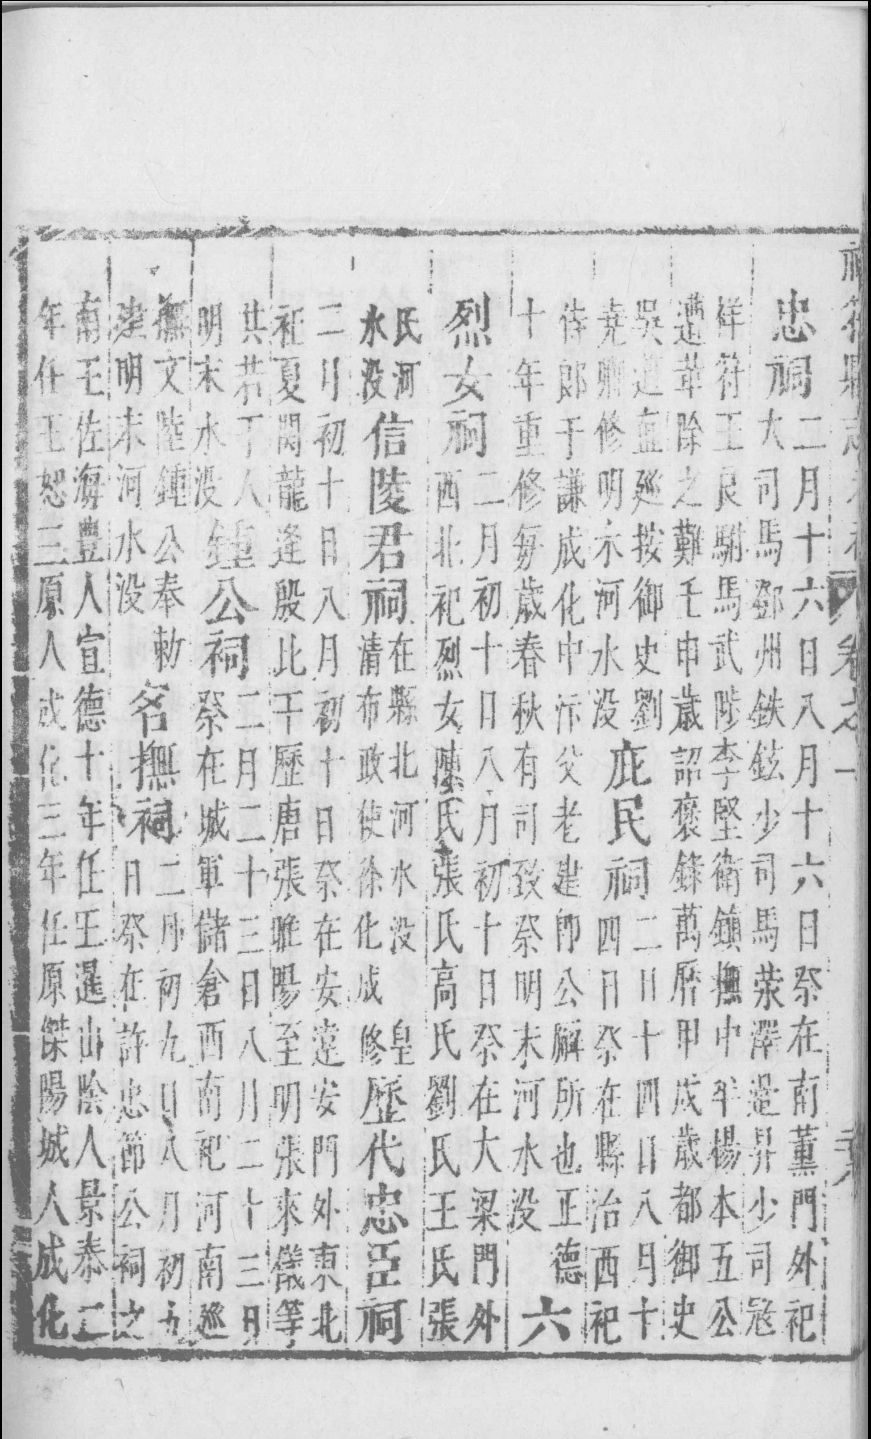 祥符縣志 卷之一
忠祠
二月十六日八月十六日祭在南薰門外祀
大司馬鄧州鉄鉉少司馬滎澤邊昇少司寇
祥符王良駙馬武陟李堅衛鎮撫中牟楊本五公
遭革除之難壬申歲詔褒錄萬曆甲戌歲都御史
吳道直廵按御史劉
堯卿修明末河水没
庶民祠
二月十四日八月十
四日祭在縣治西祀
侍郎于謙成化中汴父老建即公廨所也正德
十年重修每歲春秋有司致祭明末河水没
六
烈女祠
二月初十日八月初十日祭在大梁門外
西北祀烈女陳氏張氏高氏劉氏王氏張
氏河
水没
信陵君祠
在縣北河水没 皇
清布政使徐化成修
歷代忠臣祠
二月初十日八月初十日祭在安遠安門外東北
祀夏関龍逄殷比干歷唐張睢陽至明張來儀等
共若干人
明末水没
鍾公祠
二月二十三日八月二十三日
祭在城軍儲倉西南祀河南廵
撫文陸鍾公奉勅
建明末河水没
名撫祠
二月初九日八月初五
日祭在許忠節公祠之
南王佐海豊人宣德十年任王暹山陰人景泰二
年任王恕三原人成化三年任原傑陽城人成化